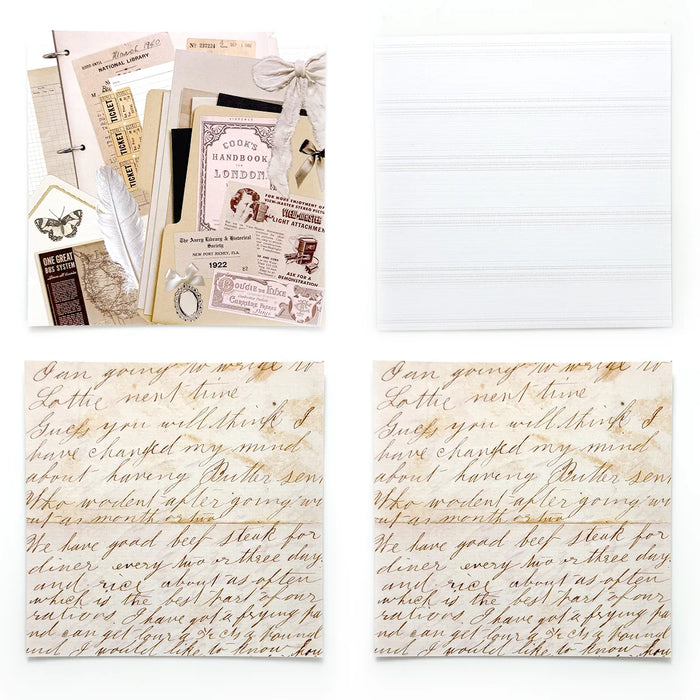 March 1940
NATIONAL LIBRARY
No 237224 SEP 1
TICKET
TICKET
TICKET
COOK'S
HANDBOOK
FOR
LONDON.
FOR MORE ENJOYMENT OF
VIEW-MASTER STEREO PICTURES
VIEW-MASTER
LIGHT ATTACHMENT
ASK FOR A
DEMONSTRATION
The Avery Library & Historical
Society
NEW PORT RICHEY, FLA.
1922
82
BOUGIE DE LUXE
CARRIÈRE FRÈRES
ONE GREAT
BUS SYSTEM
Can going to write to
Lottie next time
Guess you will think I
have changed my mind
about having Butter sent
Who wodent after going wi
out as month or two
We have goad beef steak for
diner every two or three day
and rice about as often
which is the best part of our
rations. I have got a frying pa
nd can get four a 5c cts a pound
nd I would like to know how
Can going to write to
Lottie next time
Guess you will think I
have changed my mind
about having Butter sent
Who wodent after going wi
out as month or two
We have goad beef steak for
diner every two or three day
and rice about as often
which is the best part of our
rations. I have got a frying pa
nd can get four a 5c cts a pound
nd I would like to know how